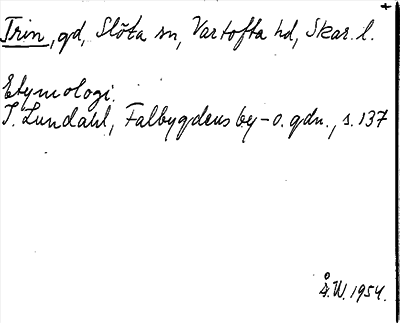 +
Trin, gd, Slöta sn, Vartofta hd, Skar. l.
Etymologi.
I. Lundahl, Falbygdens by-o. gdn., s. 137
Å. W. 1954.